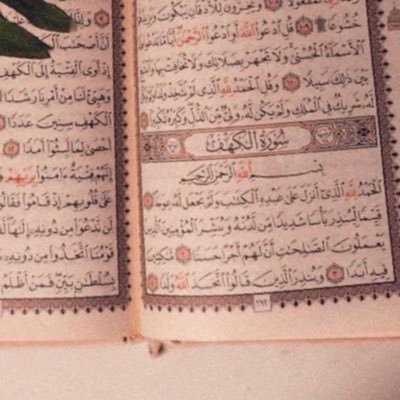 لَمَفْعُولًا ١٠٨ وَيَخِرُّونَ لِلْأَذْقَانِ يَبْكُونَ
خُشُوعًا ۩ ١٠٩ قُلِ ٱدْعُوا۟ ٱللَّهَ أَوِ ٱدْعُوا۟ ٱلرَّحْمَٰنَ أَيًّا مَّا تَدْعُوا۟
ٱلْأَسْمَآءُ ٱلْحُسْنَىٰ وَلَا تَجْهَرْ بِصَلَاتِكَ وَلَا تُخَافِتْ بِهَا
بَيْنَ ذَٰلِكَ سَبِيلًا ١١٠ وَقُلِ ٱلْحَمْدُ لِلَّهِ ٱلَّذِى لَمْ يَتَّخِذْ وَلَدًا
لَّهُۥ شَرِيكٌ فِى ٱلْمُلْكِ وَلَمْ يَكُن لَّهُۥ وَلِىٌّ مِّنَ ٱلذُّلِّ وَكَبِّرْهُ تَكْبِيرًا
سُورَةُ الكَهْفِ
بِسْمِ ٱللَّهِ ٱلرَّحْمَٰنِ ٱلرَّحِيمِ
ٱلْحَمْدُ لِلَّهِ ٱلَّذِىٓ أَنزَلَ عَلَىٰ عَبْدِهِ ٱلْكِتَٰبَ وَلَمْ يَجْعَل لَّهُۥ عِوَجَا ١
قَيِّمًا لِّيُنذِرَ بَأْسًا شَدِيدًا مِّن لَّدُنْهُ وَيُبَشِّرَ ٱلْمُؤْمِنِينَ ٱلَّذِينَ
يَعْمَلُونَ ٱلصَّٰلِحَٰتِ أَنَّ لَهُمْ أَجْرًا حَسَنًا ٢ مَّٰكِثِينَ
فِيهِ أَبَدًا ٣ وَيُنذِرَ ٱلَّذِينَ قَالُوا۟ ٱتَّخَذَ ٱللَّهُ وَلَدًا ٤
٢٩٣
أَنَّ أَصْحَٰبَ
إِذْ أَوَى ٱلْفِتْيَةُ إِلَى ٱلْكَهْفِ
وَهَيِّئْ لَنَا مِنْ أَمْرِنَا رَشَدًا
ٱلْكَهْفِ سِنِينَ عَدَدًا
أَحْصَىٰ لِمَا لَبِثُوٓا۟ أَمَدًا ١٢
إِنَّهُمْ فِتْيَةٌ ءَامَنُوا۟ بِرَبِّهِمْ
عَلَىٰ قُلُوبِهِمْ إِذْ قَامُوا۟ فَقَالُوا۟
لَن نَّدْعُوَا۟ مِن دُونِهِۦٓ إِلَٰهًا
قَوْمُنَا ٱتَّخَذُوا۟ مِن دُونِهِۦٓ
بِسُلْطَٰنٍۭ بَيِّنٍ فَمَنْ أَظْلَمُ